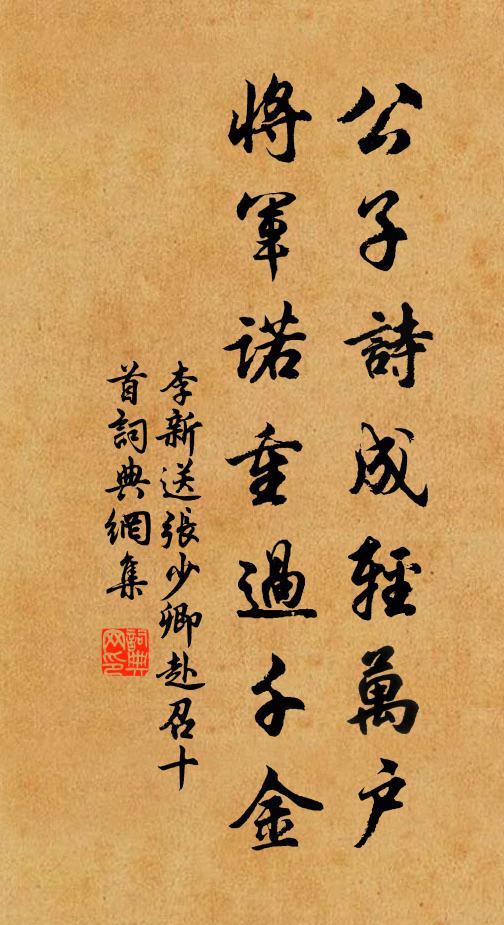 公子詩成輕萬户
將軍諾重過千金
李新送張少卿赴召十
首詞典網集
詞典
网印